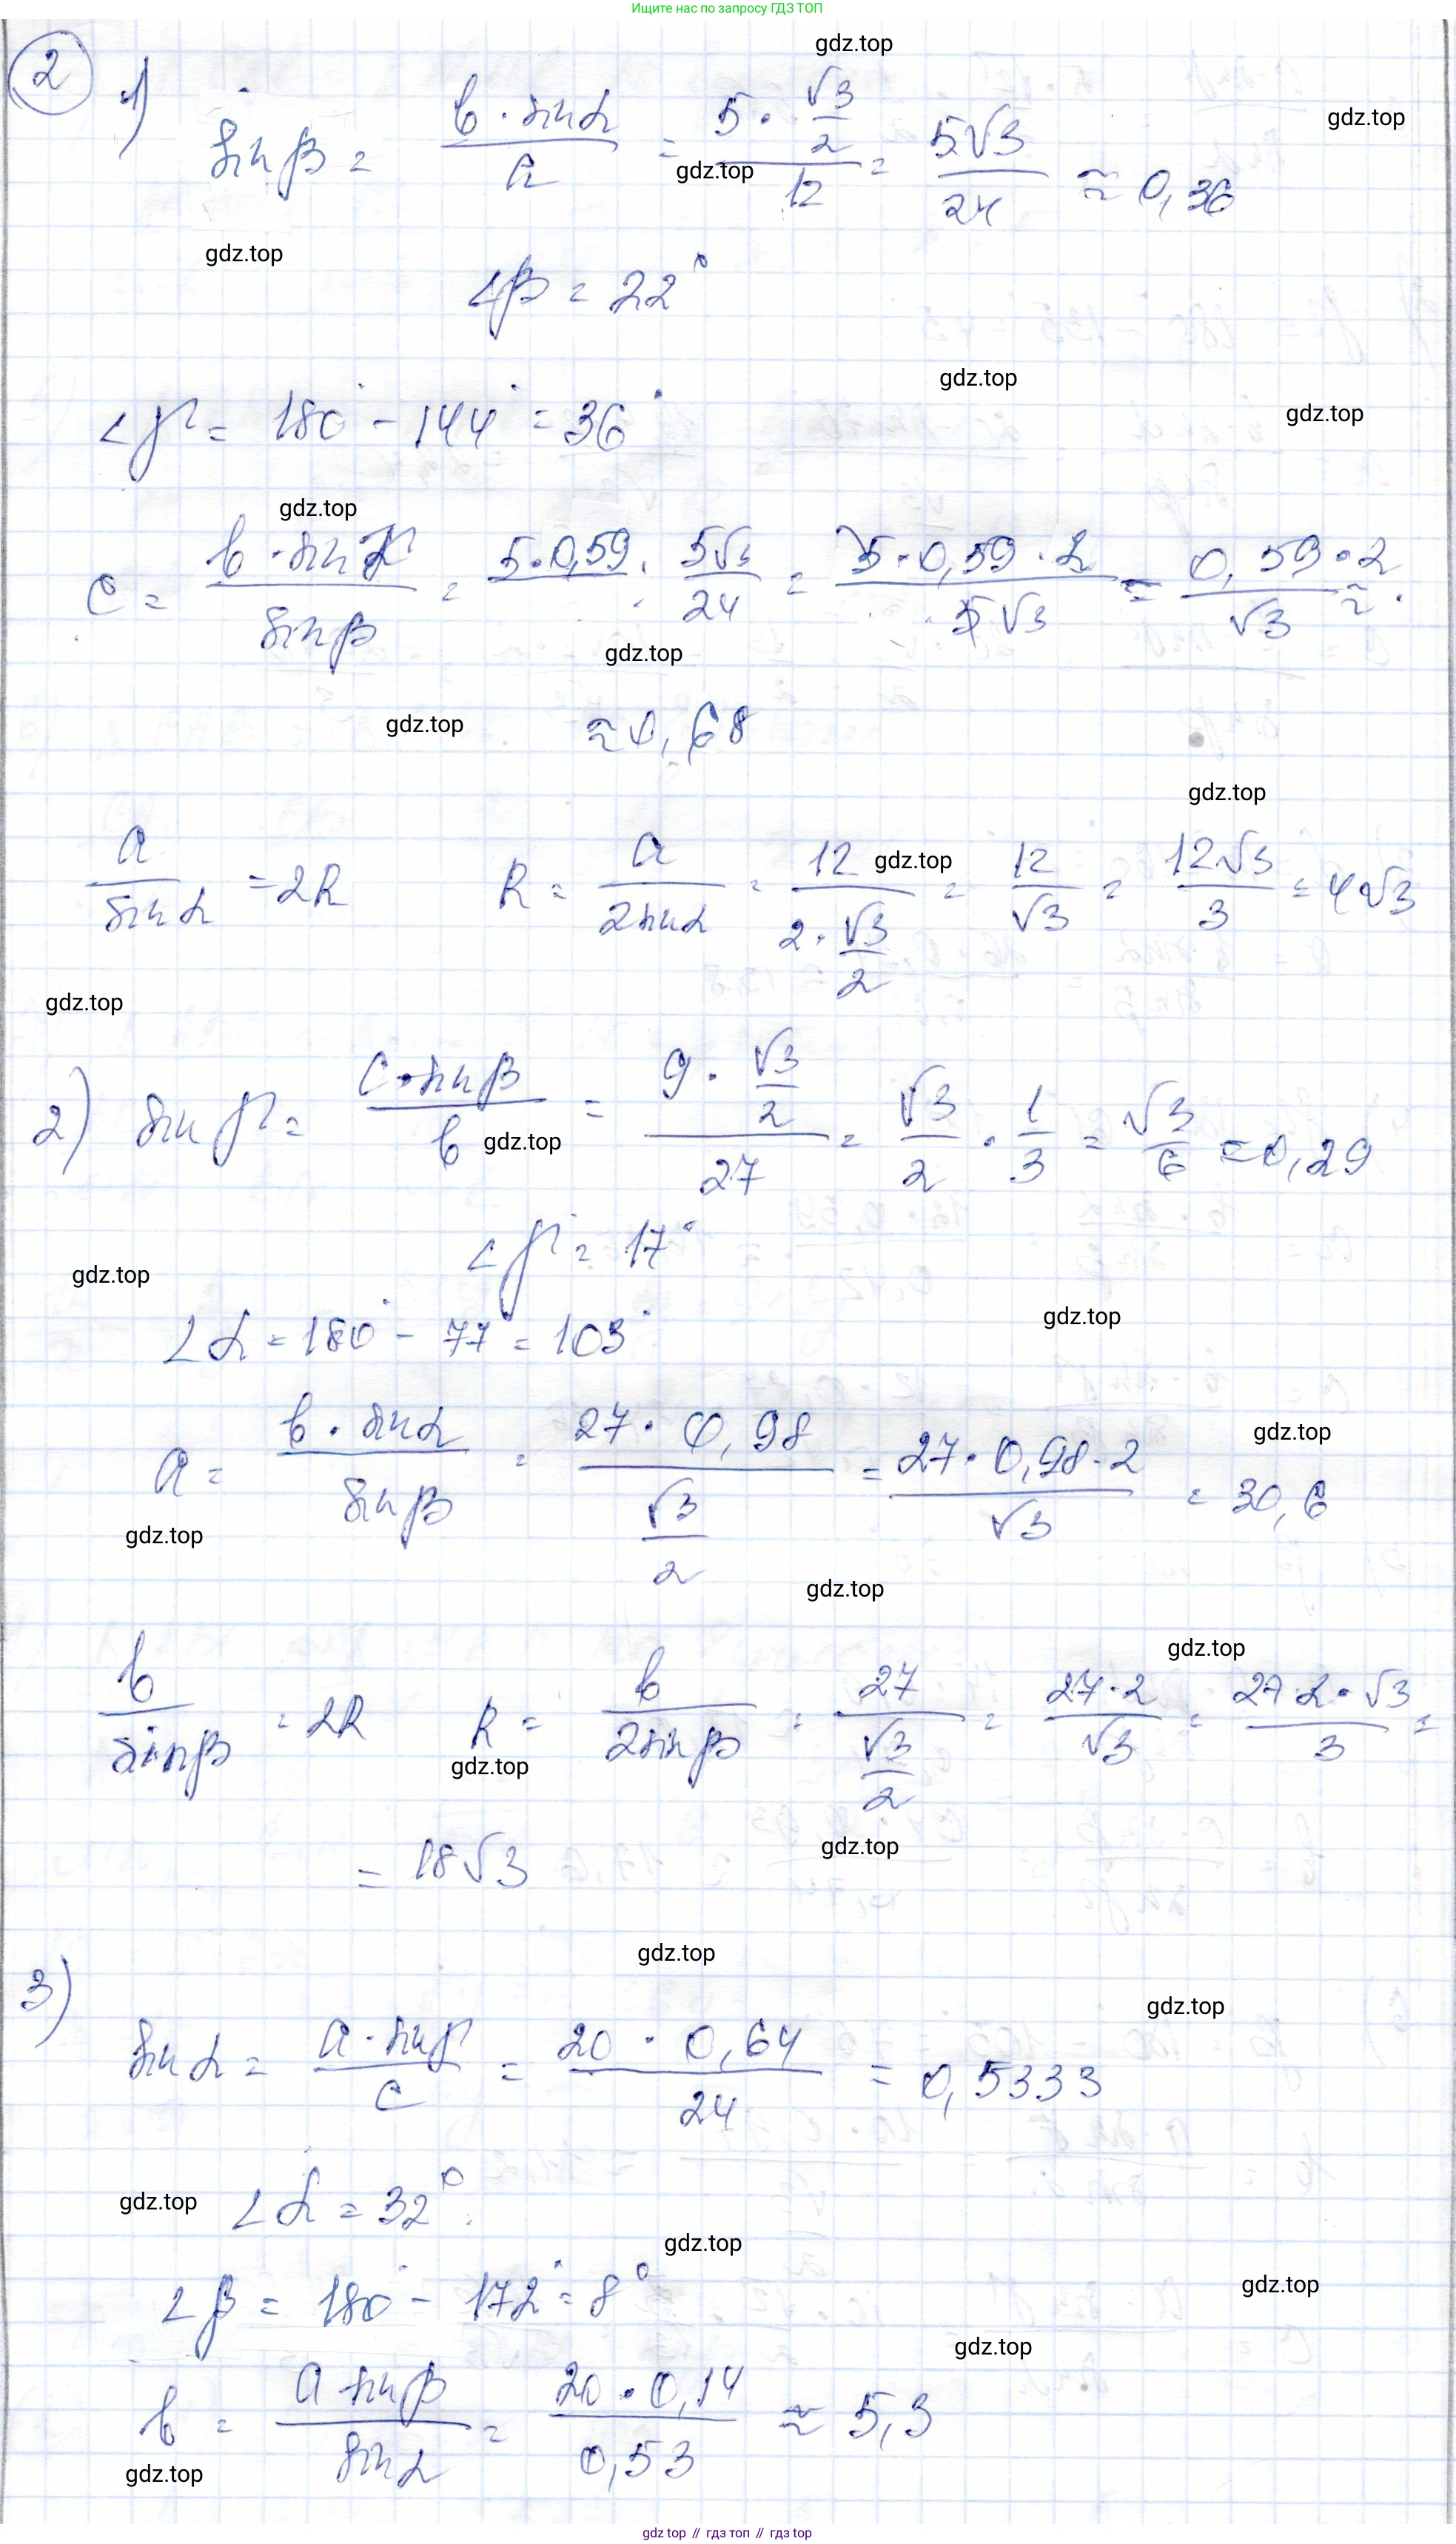 Ищите нас по запросу ГДЗ ТОП
gdz.top
② 1) sin β = (b · sin α)/a = (5 · √3/2)/12 = 5√3/24 ≈ 0,36
gdz.top
gdz.top
gdz.top
∠β = 22°
gdz.top
∠γ = 180° - 144° = 36°
gdz.top
gdz.top
c = (b · sin γ)/(sin β) = 5·0,59 : 5√3/24 = (5·0,59·2)/(5√3) = (0,59·2)/√3 ≈
gdz.top
gdz.top
≈ 0,68
gdz.top
a/(sin α) = 2R R = a/(2 sin α) = 12/(2·√3/2) = 12/√3 = 12√3/3 = 4√3
gdz.top
gdz.top
2) sin γ = (c · sin β)/b = (9 · √3/2)/27 = √3/2 · 1/3 = √3/6 = 0,29
gdz.top
∠γ = 17°
gdz.top
∠α = 180° - 77 = 103°
gdz.top
a = (b · sin α)/(sin β) = (27 · 0,98)/(√3/2) = (27·0,98·2)/√3 = 30,6
gdz.top
gdz.top
gdz.top
gdz.top
b/(sin β) = 2R R = b/(2 sin β) = 27/(√3/2) = 27·2/√3 = (27·2·√3)/3 =
gdz.top
= 18√3
gdz.top
gdz.top
3)
gdz.top
sin α = (a · sin γ)/c = (20 · 0,64)/24 = 0,5333
gdz.top
∠α = 32°
gdz.top
∠β = 180° - 172° = 8°
gdz.top
gdz.top
b = (a sin β)/(sin α) = (20 · 0,14)/0,53 ≈ 5,3
gdz.top
gdz.top // гдз топ // гдз top